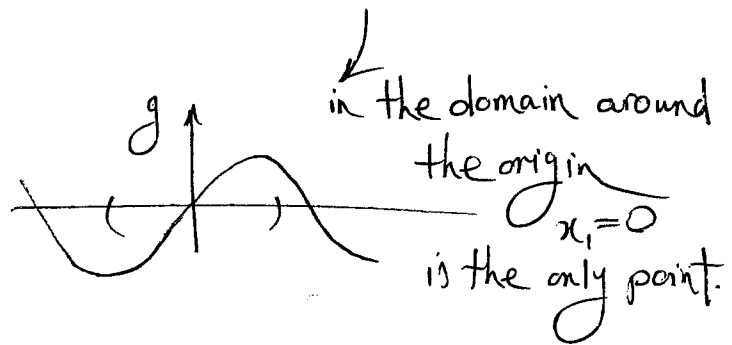 g
in the domain around
the origin
x₁=0
is the only point.